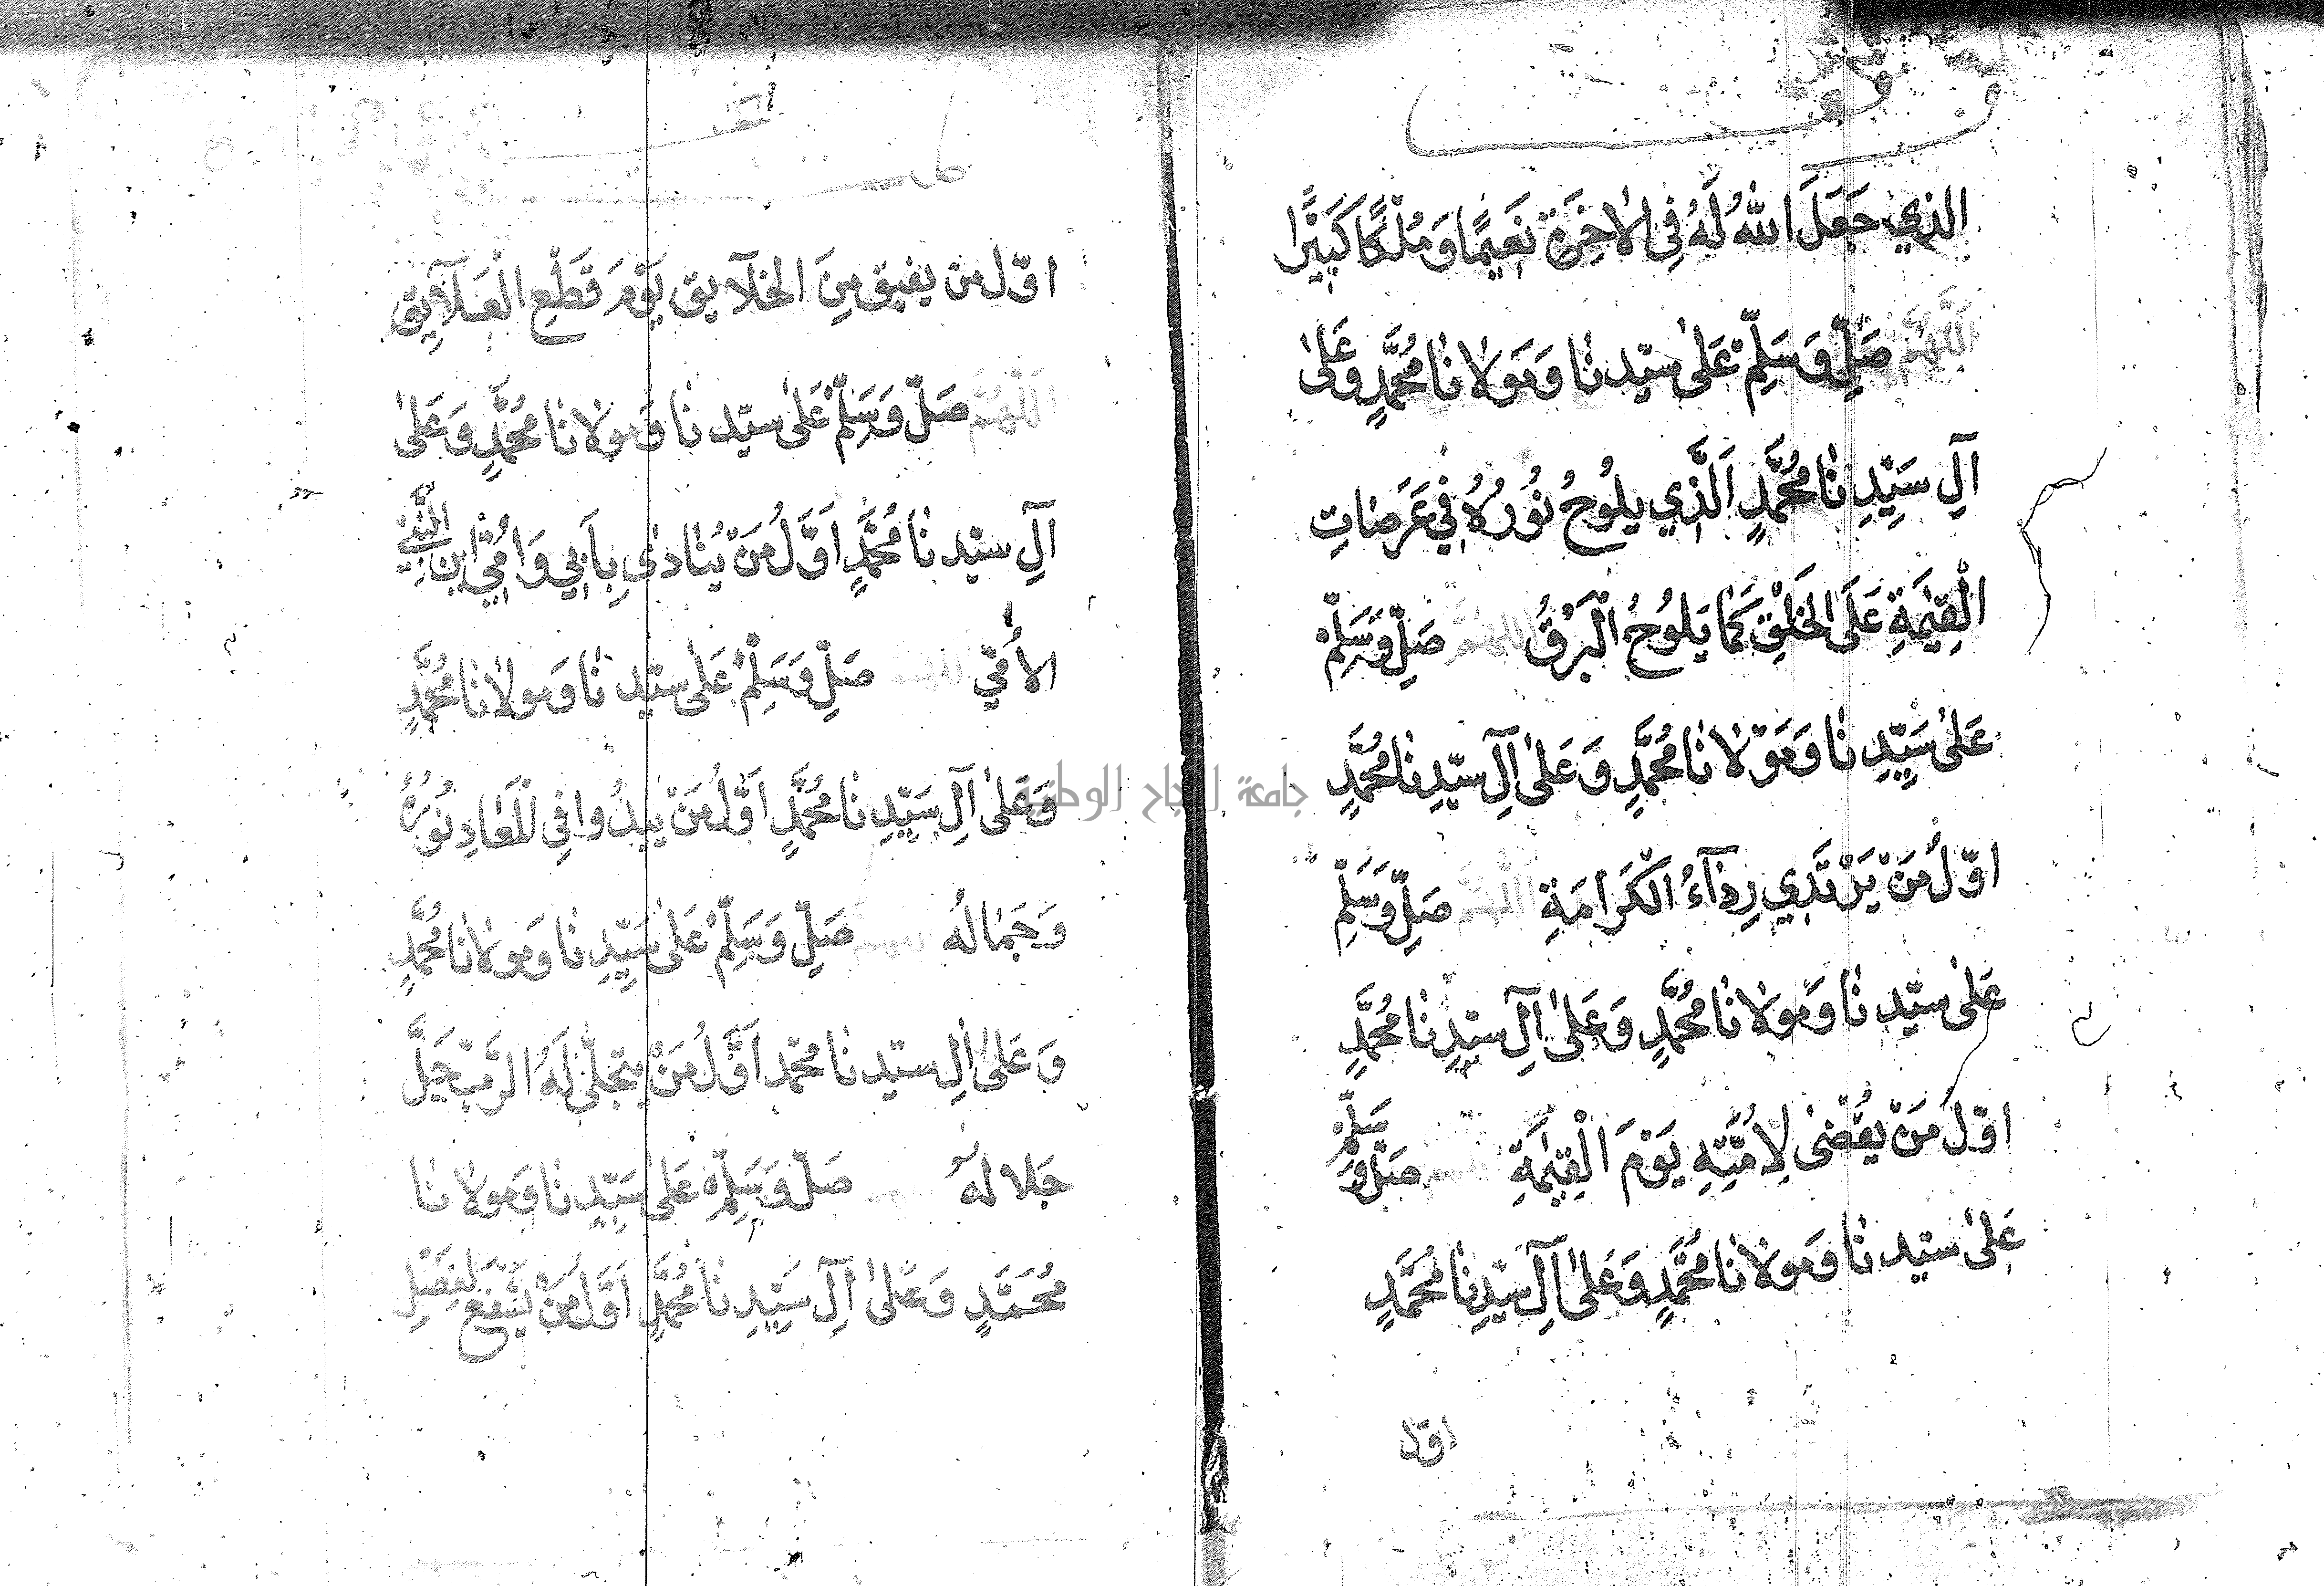 الذي جَعَلَ اللّٰهُ لَهُ فِي الاٰخِرَةِ نَعِيمًا وَمُلْكًا كَبِيْرًا
اَللّٰهُمَّ صَلِّ وَسَلِّمْ عَلىٰ سيّدنٰا وَمَوْلاٰنٰا مُحَمَّدٍ وَعَلىٰ
آلِ سَيِّدِنٰا مُحَمَّدٍ اَلَّذِي يلُوحُ نُوْرُهُ فِي عَرَصٰاتِ
الْقِيٰمَةِ عَلَى الخَلْقِ كَمٰا يَلُوحُ الْبَرْقُ اللهم صَلِّ وَسَلِّمْ
عَلىٰ سَيِّدِنٰا وَمَوْلاٰنٰا مُحَمَّدٍ وَعَلىٰ آلِ سيّدِنٰا مُحَمَّدٍ
اوّلُ مَنْ يَرْتَدِي رِدٰآءُ الْكَرٰامَةِ اَللّٰهُمَّ صَلِّ وَسَلِّمْ
عَلىٰ سيّدِنٰا وَمَولاٰنٰا مُحَمَّدٍ وَعَلىٰ آلِ سيّدِنٰا مُحَمَّدٍ
اوّلُ مَنْ يُقْضىٰ لِاُمَّتِهِ يَوْمَ الْقِيٰمَةِ صَلِّ وَسَلِّمْ
عَلىٰ سيّدنٰا وَمَولاٰنٰا مُحَمَّدٍ وَعَلىٰ آلِ سَيّدِنٰا مُحَمَّدٍ
اوّل
اوّل من يفيق مِنَ الخلآيق يَوْمَ قَطْعِ الْعَلآيِقِ
اَللّٰهُمَّ صَلّ وَسَلِّمْ عَلىٰ سيّدنٰا وَمَولاٰنٰا مُحَمَّدٍ وَعَلىٰ
آلِ سيّدنٰا مُحَمَّدٍ اَوَّلُ مَنْ يُنٰادىٰ بِاَبِي وَاُمِّي ابن النَّبِيّ
الأُمّي صَلِّ وَسَلِّمْ عَلىٰ سيّدنٰا وَمَولاٰنٰا مُحَمَّدٍ
وَعَلىٰ آلِ سَيِّدِنٰا مُحَمَّدٍ اَوَّلُ مَنْ يَبْدُوا فِي الْمَعٰادِ نُوْرُهُ
وَجَمٰالُه صَلِّ وَسَلِّمْ عَلىٰ سَيِّدِنٰا وَمَولاٰنٰا مُحَمَّدٍ
وَعَلىٰ اٰلِ سيّدنٰا محمّد اَوَّلُ مَنْ يتجَلّىٰ لَهُ الرَّبّ جَلَّ
جَلاله صَلّ وَسَلِّمْ عَلىٰ سَيِّدِنٰا وَمَولاٰنٰا
مُحَمَّدٍ وَعَلىٰ آلِ سَيِّدِنٰا مُحَمَّدٍ اَوَّلُ مَنْ يَشْفَع لِفَصْلِ
جامعة النجاح الوطنية